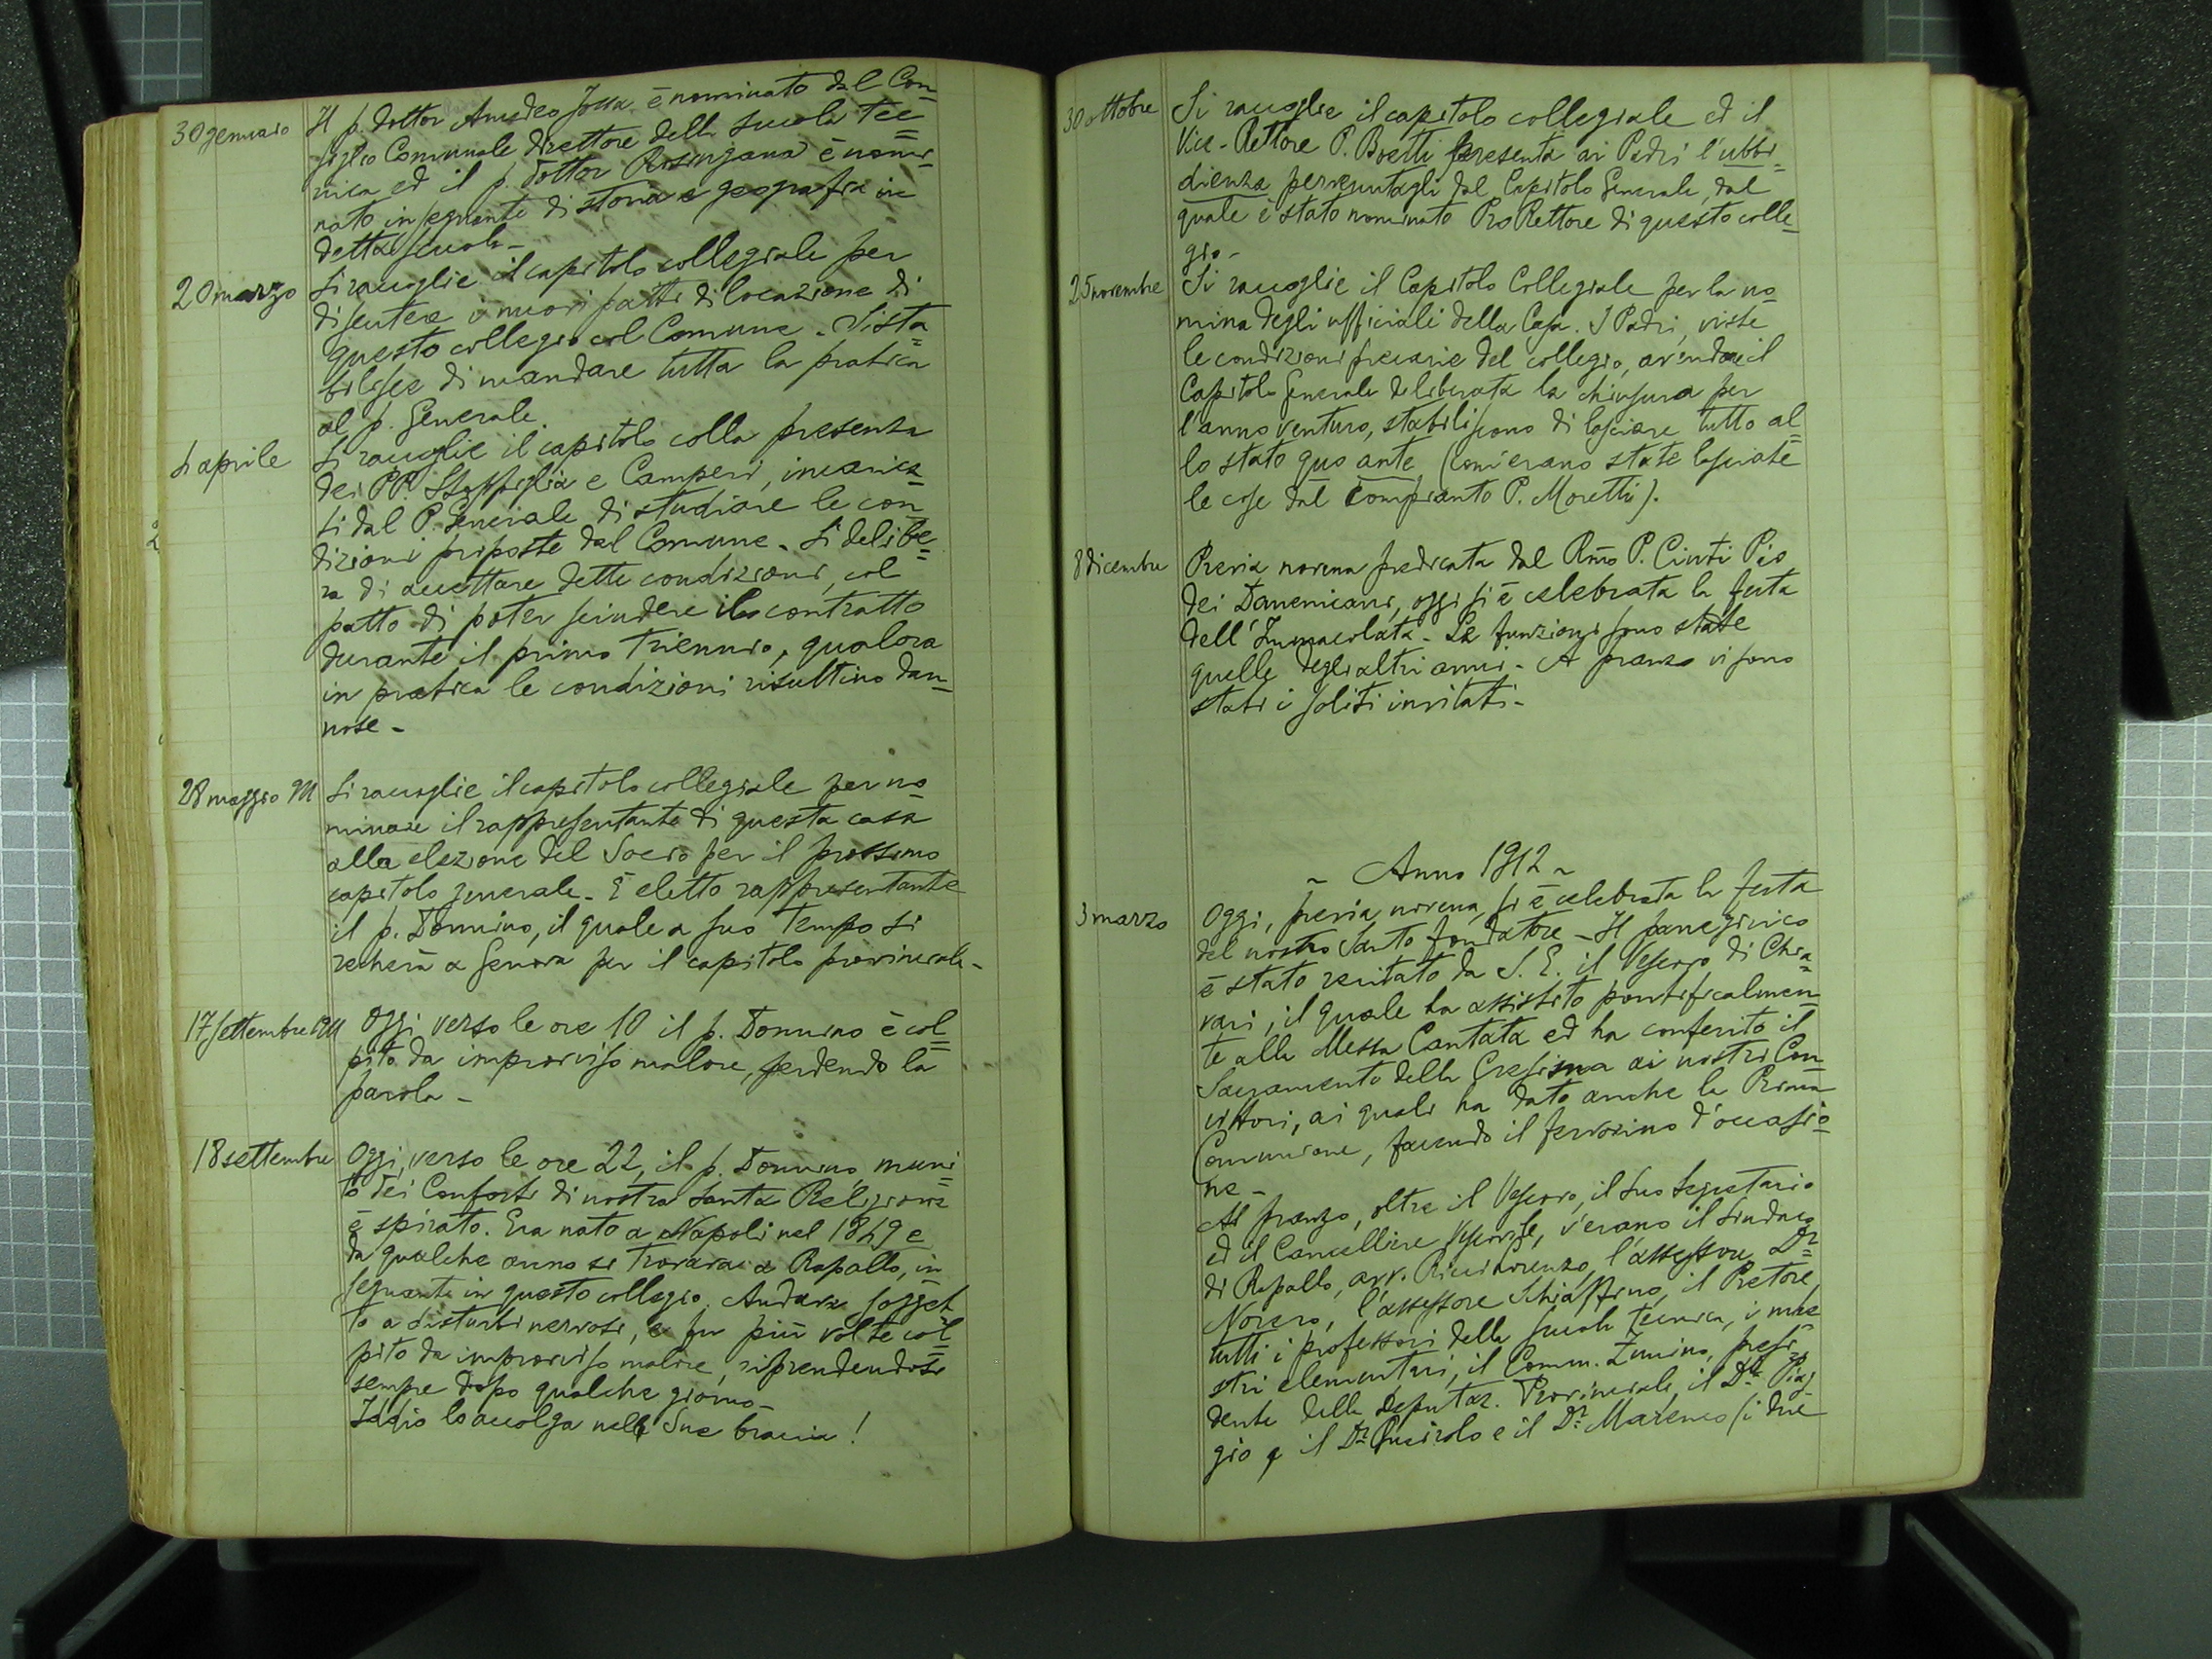 30 gennaio Il p. dottor Amedeo Jossa è nominato dal Con=
siglio Comunale direttore della scuola tec=
nica ed il p. dottor Rosingana è nomi=
nato insegnante di storia e geografia in
detta scuola -
20 marzo Si raccoglie il capitolo collegiale per
discutere i nuovi patti di locazione di
questo collegio col Comune. Si sta=
bilisce di mandare tutta la pratica
al p. Generale.
4 aprile Si raccoglie il capitolo colla presenza
dei PP. Stoppiglia e Camperi, incarica=
ti dal P. Generale di studiare le con=
dizioni proposte dal Comune. Si delibe=
ra di accettare dette condizioni, col
patto di poter scindere il contratto
durante il primo triennio, qualora
in pratica le condizioni risultino dan=
nose -
28 maggio Si raccoglie il capitolo collegiale per no=
minare il rappresentante di questa casa
alla elezione del Socio per il prossimo
capitolo generale. È eletto rappresentante
il p. Donnino, il quale a suo tempo si
recherà a Genova per il capitolo provinciale -
17 settembre 1911 Oggi verso le ore 10 il p. Donnino è col=
pito da improvviso malore, perdendo la
parola -
18 settembre Oggi, verso le ore 22, il p. Donnino, muni=
to dei Conforti di nostra Santa Religione
è spirato. Era nato a Napoli nel 1849 e
da qualche anno si trovava a Rapallo, in=
segnante in questo collegio. Andava sogget=
to a disturbi nervosi, e fu più volte col=
pito da improvviso malore, riprendendosi
sempre dopo qualche giorno -
Iddio lo accolga nelle Sue braccia!
30 ottobre Si raccoglie il capitolo collegiale ed il
Vice-Rettore P. Boetti presenta ai Padri l'ubbi=
dienza pervenutagli dal Capitolo Generale, dal
quale è stato nominato ProRettore di questo colle=
gio -
25 novembre Si raccoglie il Capitolo Collegiale per la no=
mina degli ufficiali della Casa. I Padri, viste
le condizioni precarie del collegio, avendo il
Capitolo Generale deliberata la chiusura per
l'anno venturo, stabiliscono di lasciare tutto al=
lo stato quo ante (com'erano state lasciate
le cose dal compianto P. Moretti).
8 dicembre Previa novena predicata dal Rmo P. Ciuti Pio
dei Domenicani, oggi si è celebrata la festa
dell'Immacolata - Le funzioni sono state
quelle degli altri anni - A pranzo vi sono
stati i soliti invitati -
~ Anno 1912 ~
3 marzo Oggi, previa novena, si è celebrata la festa
del nostro Santo fondatore - Il panegirico
è stato recitato da S. E. il Vescovo di Chia=
vari, il quale ha assistito pontificalmen=
te alla Messa Cantata ed ha conferito il
Sacramento della Cresima ai nostri Con=
vittori, ai quali ha dato anche la Prima
Comunione, facendo il fervorino d'occasio=
ne -
Al pranzo, oltre il Vescovo, il suo Segretario
ed il Cancelliere Vescovile, v'erano il Sindaco
di Rapallo, avv. Ricci Lorenzo, l'assessore Dr
Norero, l'assessore Schiaffino, il Pretore,
tutti i professori della scuola tecnica, i mae=
stri elementari, il Comm. Zunino, presi=
dente della Deputaz. Provinciale, il Dr Piag=
gio e il Dr Queirolo e il Dr Marengo (i due